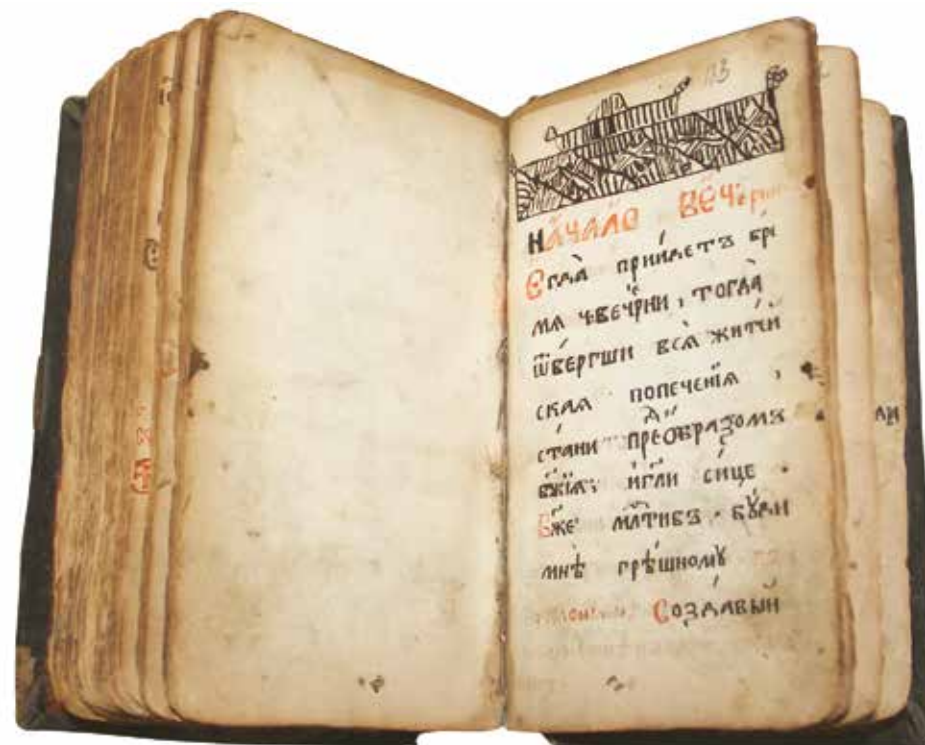 113
НАЧАЛО ВЕ́Ч
Є҆гда̀ прїи́детъ вре
мѧ к̾вече́рни , тогда̀
ѿве́ргши всѧ̑ жите́й
скаѧ попече́нїѧ ,
ста́ни пре́дѡбразомъ
бж҃їѧ , и҆гл҃и си́це .
Бж҃е мл҇тивъ бꙋ́ди
мнѣ̀ грѣ́шномꙋ
Созда́вый